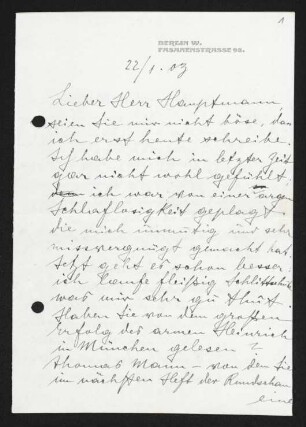 1
BERLIN W.
FASANENSTRASSE 96.
22/1. 03
Lieber Herr Hauptmann,
seien Sie mir nicht böse, dass
ich erst heute schreibe.
Ich habe mich in letzter Zeit
gar nicht wohl gefühlt,
ich war von einer argen
Schlaflosigkeit geplagt,
die mich unmutig und sehr
missvergnügt gemacht hat.
Jetzt geht es schon besser,
ich laufe fleißig Schlittschuh
was mir sehr gut thut.
Haben Sie von dem großen
Erfolg des armen Heinrich
in München gelesen?
Thomas Mann – von dem Sie
im nächsten Heft der Rundschau
eine